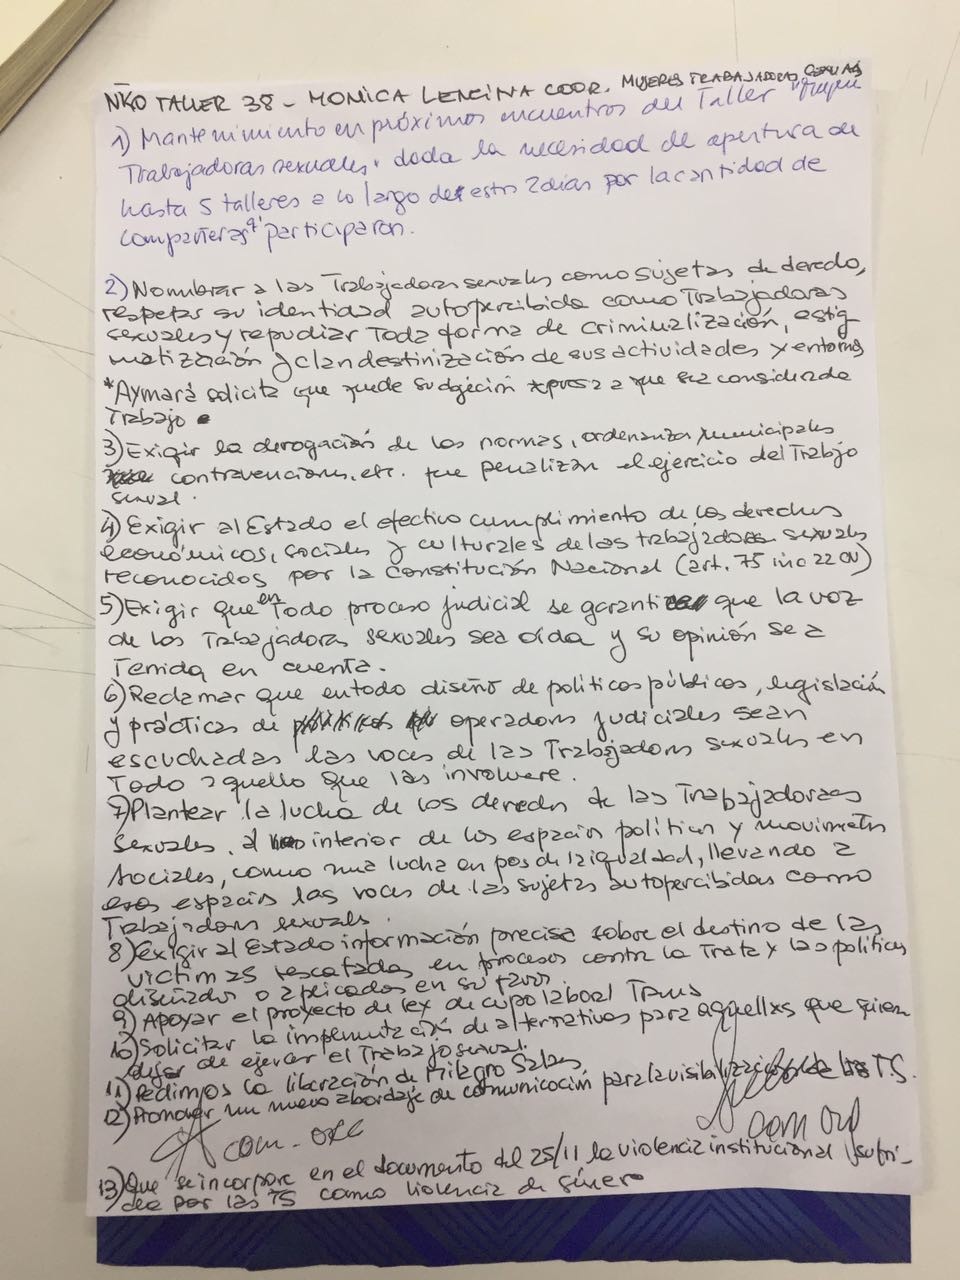 TALLER 38 - MONICA LENCINA COOR. MUJERES TRABAJADORAS SEXUALES
1) Mantenimiento en próximos encuentros del Taller "Mujeres
Trabajadoras sexuales", dada la necesidad de apertura de
hasta 5 talleres a lo largo de estos 2 dias por la cantidad de
compañeras q' participaron.
2) Nombrar a las Trabajadoras sexuales como sujetas de derecho,
respetar su identidad autopercibida como Trabajadoras
sexuales y repudiar Toda forma de criminalización, estig
matización y clandestinización de sus actividades y entornos
*Aymará solicita que quede su objeción expresa a que sea considerado
Trabajo
3) Exigir la derogación de las normas, ordenanzas municipales
contravenciones, etc. que penalizan el ejercicio del Trabajo
sexual.
4) Exigir al Estado el efectivo cumplimiento de los derechos
económicos, sociales y culturales de las trabajadoras sexuales
reconocidos por la Constitución Nacional (art. 75 inc 22 CN)
5) Exigir que en Todo proceso judicial se garantice que la voz
de las Trabajadoras sexuales sea oída y su opinión sea
Tenida en cuenta.
6) Reclamar que en todo diseño de políticas públicas, legislación
y prácticas de operadores judiciales sean
escuchadas las voces de las Trabajadoras sexuales en
Todo aquello que las involucre.
7) Plantear la lucha de los derechos de las Trabajadoras
sexuales, al interior de los espacios políticos y movimientos
sociales, como una lucha en pos de la igualdad, llevando a
esos espacios las voces de las sujetas autopercibidas como
Trabajadoras sexuales.
8) Exigir al Estado información precisa sobre el destino de las
víctimas rescatadas en procesos contra la Trata y las políticas
diseñadas o aplicadas en su favor.
9) Apoyar el proyecto de ley de cupo laboral Trans
10) Solicitar la implementación de alternativas para aquellxs que quieran
dejar de ejercer el Trabajo sexual.
11) Pedimos la liberación de Milagro Sala
12) Promover un nuevo abordaje de comunicación para la visibilización de las T.S.
com. org
com org
13) Que se incorpore en el documento del 25/11 la violencia institucional sufri-
da por las TS como violencia de género